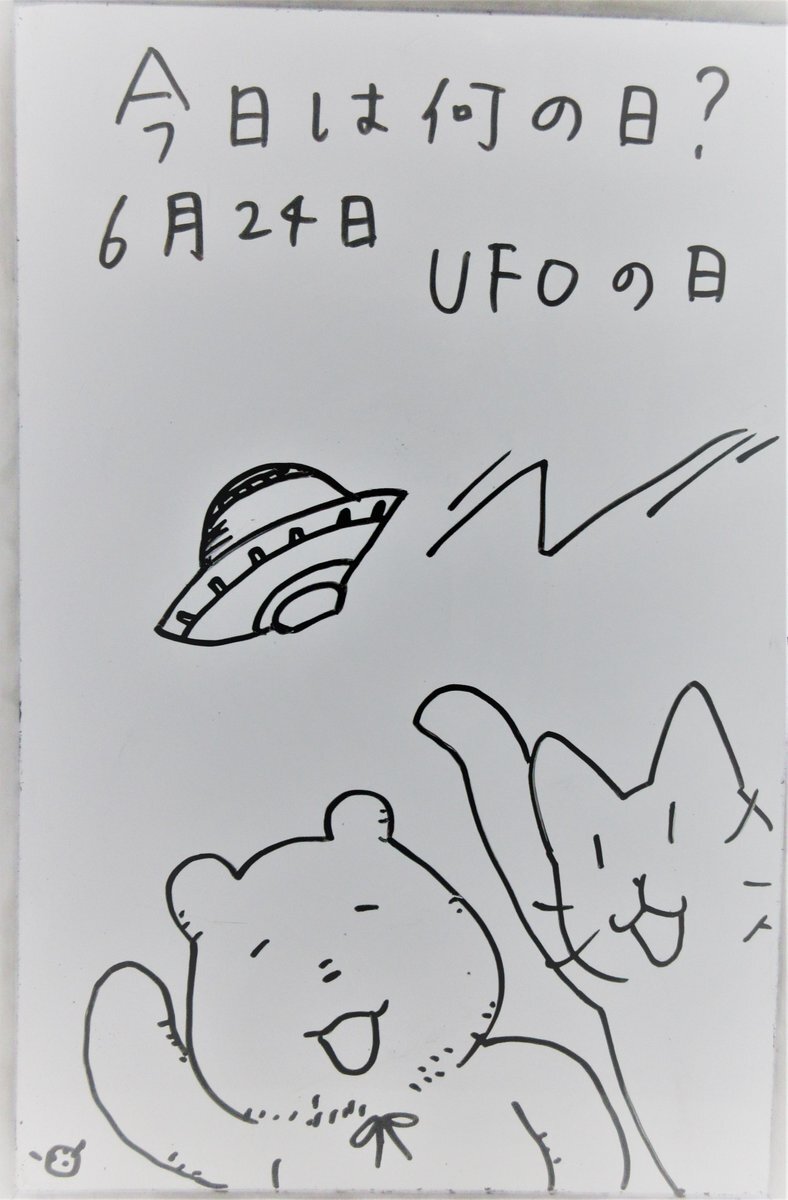 今日は何の日?
6月24日
UFOの日